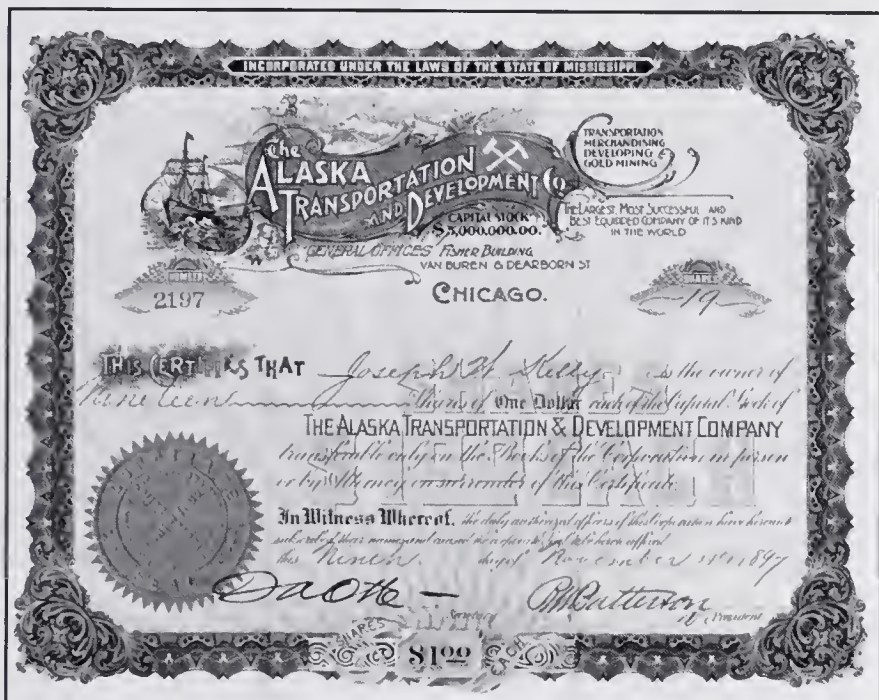 INCORPORATED UNDER THE LAWS OF THE STATE OF MISSISSIPPI
The
ALASKA
TRANSPORTATION
AND DEVELOPMENT Co
CAPITAL STOCK
$5,000,000.00.
TRANSPORTATION
MERCHANDISING
DEVELOPING
GOLD MINING
THE LARGEST, MOST SUCCESSFUL AND
BEST EQUIPPED COMPANY OF ITS KIND
IN THE WORLD
GENERAL OFFICES FISHER BUILDING
VAN BUREN & DEARBORN ST
CHICAGO.
NUMBER
2197
SHARES
19
THIS CERTIFIES THAT Joseph H. Kelly is the owner of
Nineteen Shares of One Dollar each of the Capital Stock of
THE ALASKA TRANSPORTATION & DEVELOPMENT COMPANY
transferable only on the Books of the Corporation in person
or by Attorney on surrender of this Certificate
In Witness Whereof, the duly authorized officers of this Corporation have hereunto
this day of November 1897
Secretary
RMPatterson
President
SHARES
$1.00